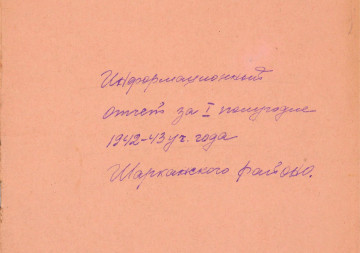 Информационный
отчет за I полугодие
1942-43 уч. года
Шарканского районо.